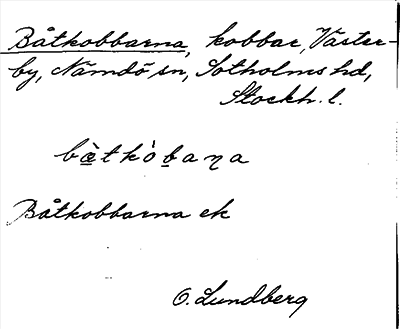 Båtkobbarna, kobbar, Väster-
by, Nämdö sn, Sotholms hd,
Stockh. l.
bå̀tkòbaṇa
Båtkobbarna ek
O. Lundberg